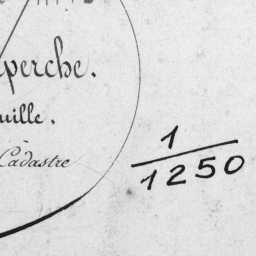 perche.
uille.
Cadastre
1/1250